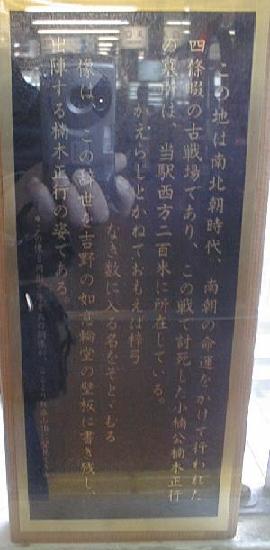 この地は南北朝時代、南朝の命運をかけて行われた
四條畷の古戦場であり、この戦で討死した小楠公楠木正行
の墓所は、当駅西方二百米に所在している。
かえらじとかねておもえば梓弓
なき数に入る名をぞとゞむる
像は、この辞世を吉野の如意輪堂の壁板に書き残し、
出陣する楠木正行の姿である。